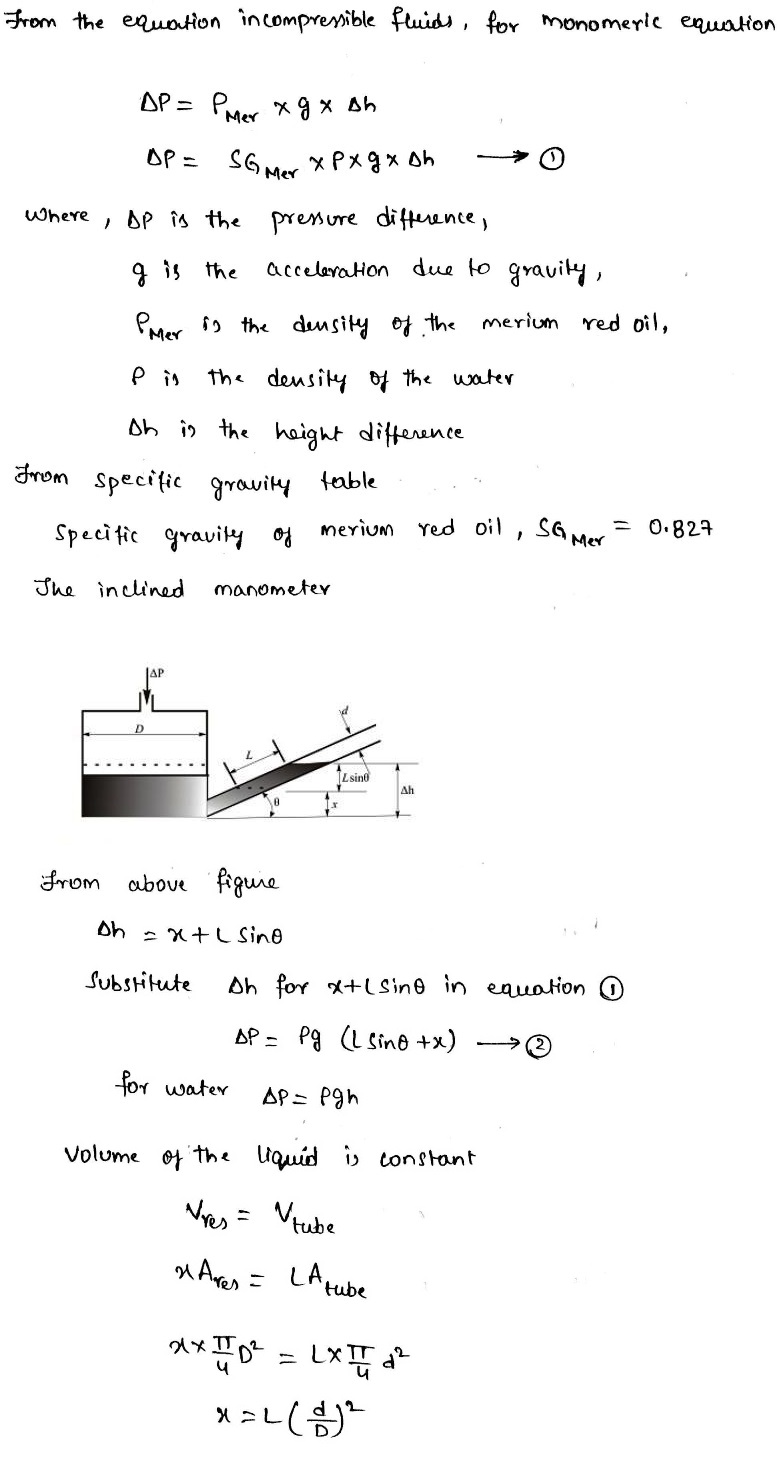 From the equation incompressible fluids, for monomeric equation
ΔP = ρ_Mer × g × Δh
ΔP = SG_Mer × ρ × g × Δh → ①
where, ΔP is the pressure difference,
g is the acceleration due to gravity,
ρ_Mer is the density of the merium red oil,
ρ is the density of the water
Δh is the height difference
From specific gravity table
Specific gravity of merium red oil, SG_Mer = 0.827
The inclined manometer
ΔP
D
d
L
L sinθ
Δh
θ
x
From above figure
Δh = x + L sinθ
Substitute Δh for x + L sinθ in equation ①
ΔP = ρg (L sinθ + x) → ②
for water ΔP = ρgh
Volume of the liquid is constant
V_res = V_tube
x A_res = L A_tube
x × π/4 D² = L × π/4 d²
x = L (d/D)²